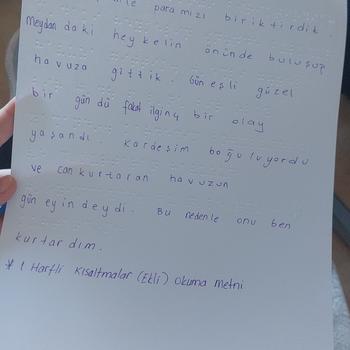 paramızı biriktirdik.
Meydandaki heykelin önünde buluşup
havuza gittik. Güneşli güzel
bir gündü fakat ilginç bir olay
yaşandı. Kardeşim boğuluyordu
ve cankurtaran havuzun
güneyindeydi. Bu nedenle onu ben
kurtardım.
* 1 Harfli Kısaltmalar (Ekli) Okuma Metni